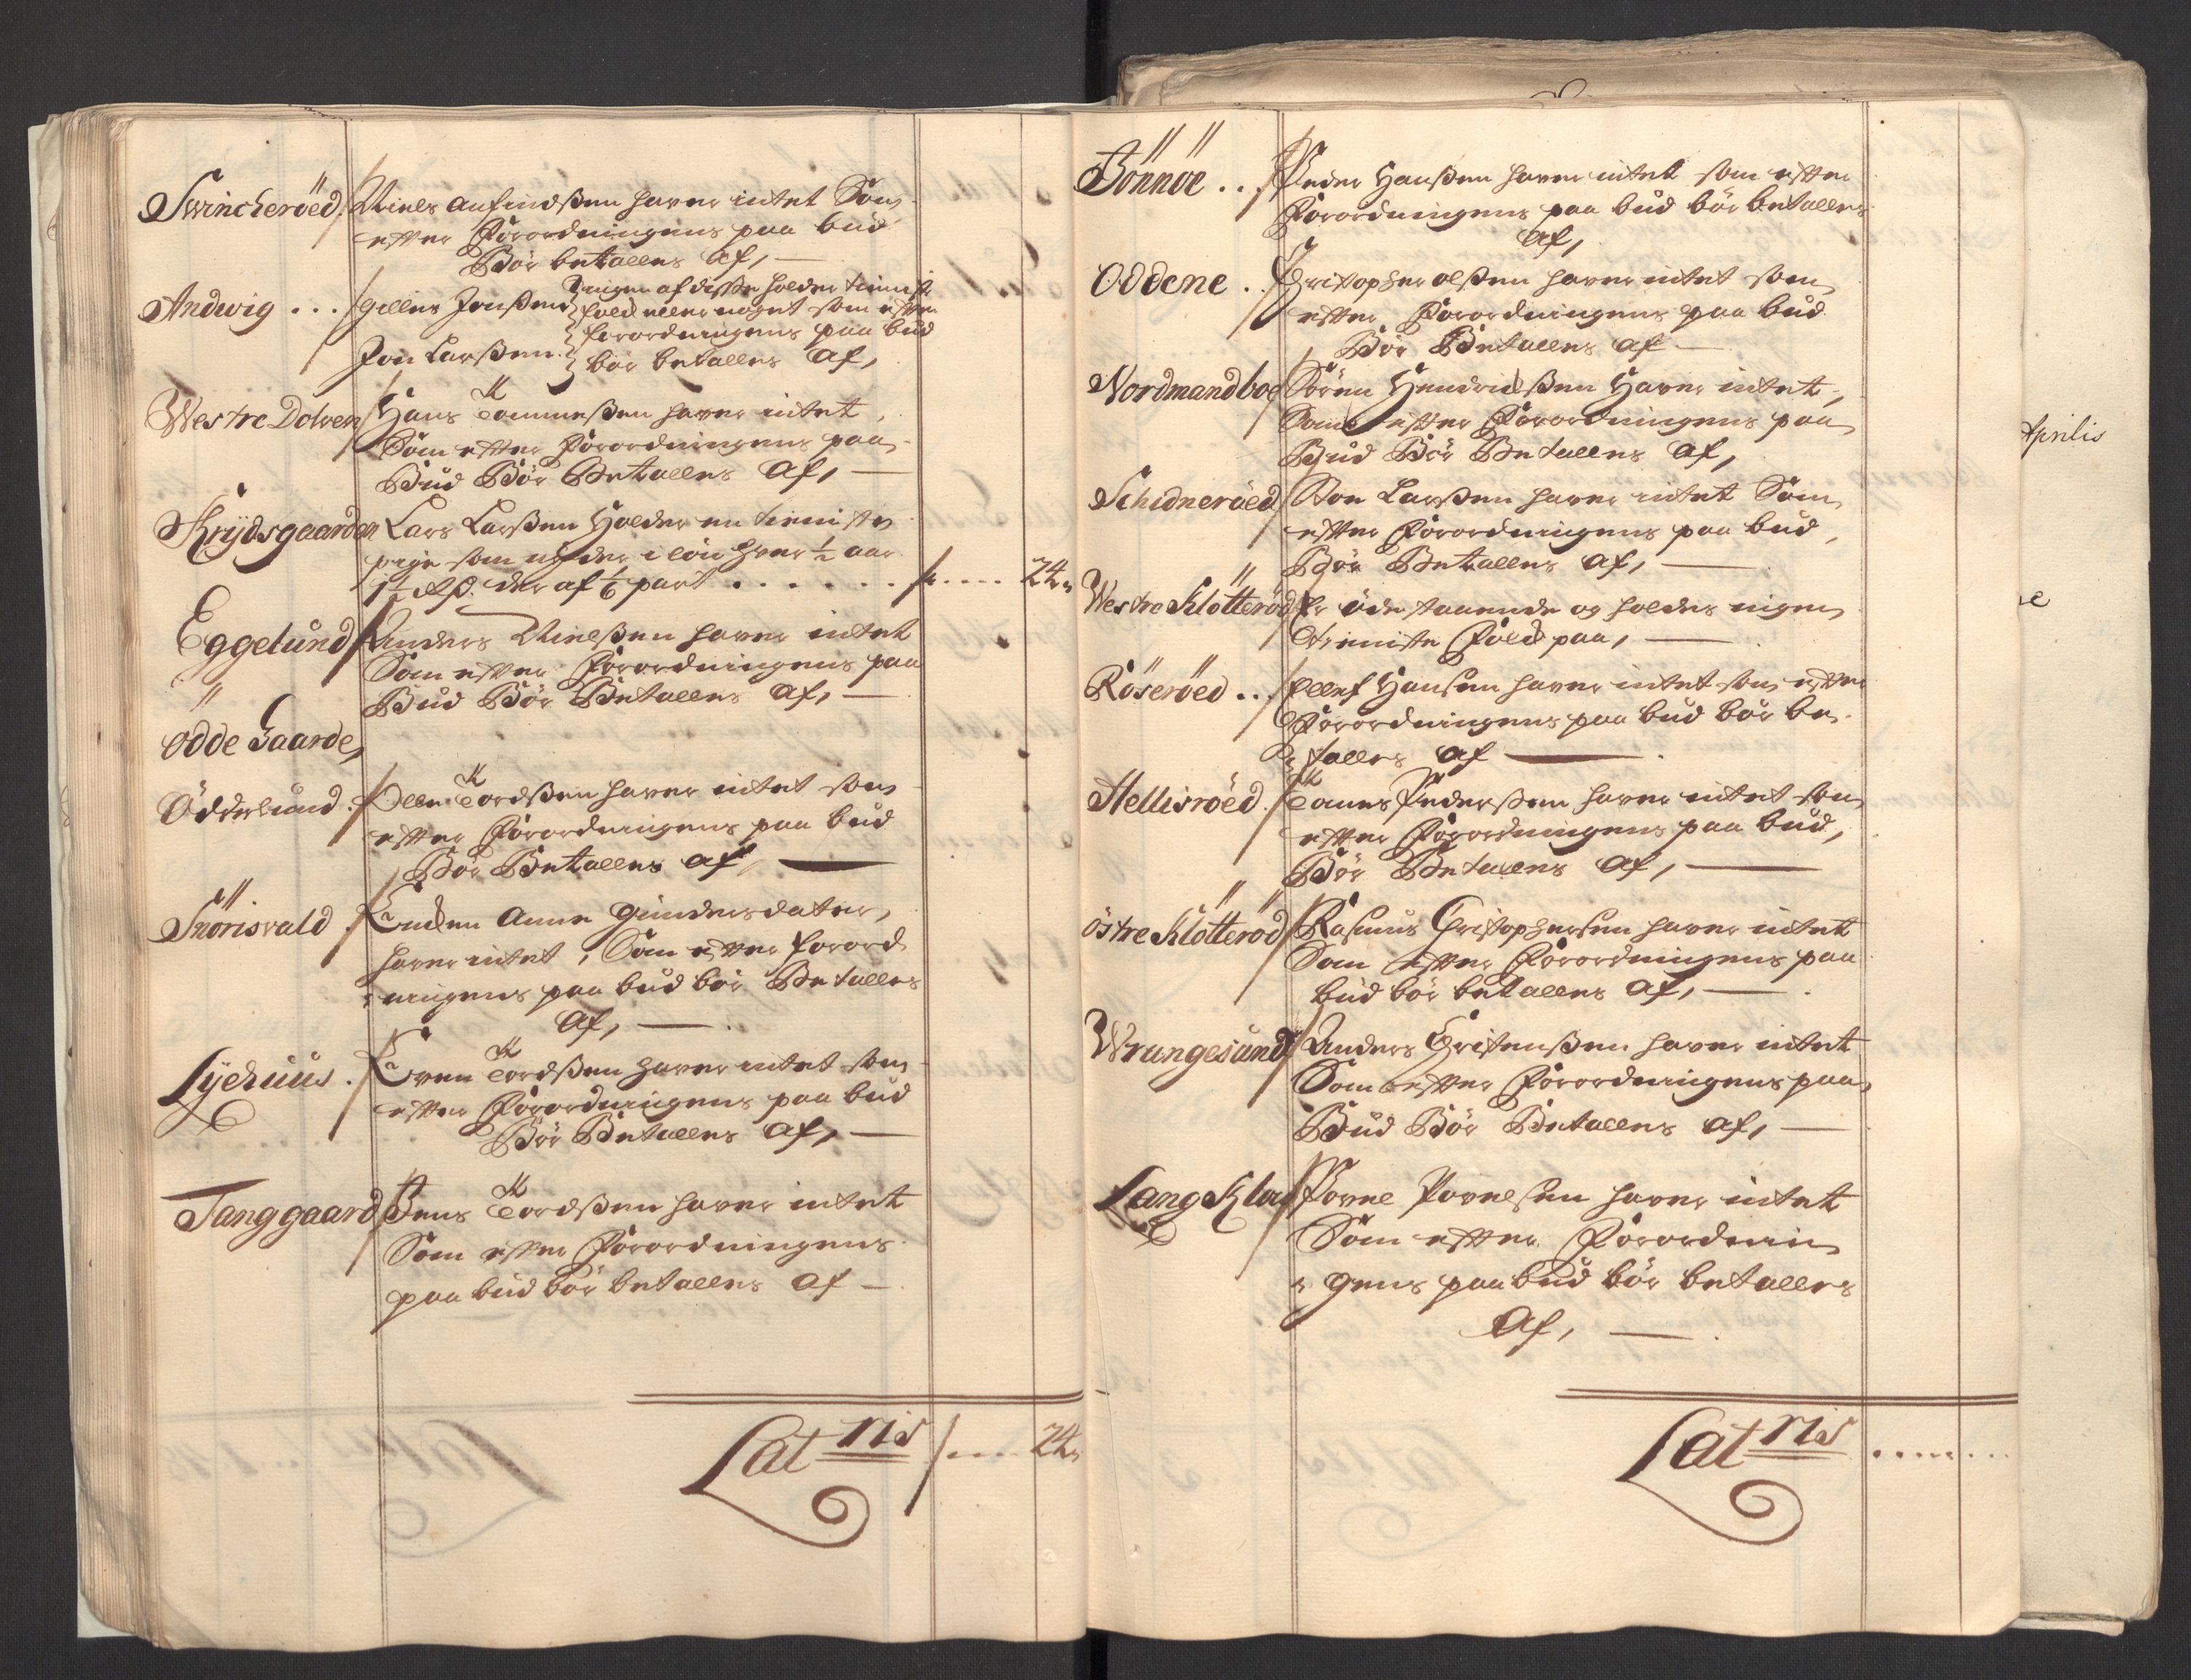 Swincheröed. Niels Anfindßen haver intet Som
efter Forordningens paa bud
Bör betalles Af, —
Andwig ... Gulles Jenßen Ingen af disse holder tienniste
folck eller noget som efter
forordningens paa bud
Jon Larßen. bör betalles Af,
Westre Dolven Hans Tommeßen haver intet,
Som efter Forordningens paa
Bud Bör Betalles Af, —
Krydsgaarden Lars Larßen Holder en tieniste
pige som nyder i lön hver ½ aar
1½ Rd. der af 1/6 part . . . . . . . 24
Eggelund Anders Nielßen haver intet
Som efter Forordningens paa
Bud Bör Betalles Af, —
Odde Gaarde,
Odderlund. Olle Tordßen haver intet som
efter Forordningens paa bud
Bör Betalles Af, —
Snörisvald. Encken Anne Gundersdater,
haver intet, Som efter forord
ningens paa bud bör Betalles
Af, —
Lyehuus. Even Tordßen haver intet som
efter Forordningens paa bud
Bör Betalles Af, —
Tanggaard Jens Tordßen haver intet
Som efter Forordningens
paa bud bör betalles Af —
Lat ris .... 24
Bönnöe .. Peder Hanßen haver intet som efter
Forordningens paa bud bör betalles
Af,
Oddene . . Christopher Olßen haver intet som
efter Forordningens paa bud
Bör Betalles Af —
Nordmandboe Sören Hendrichßen Haver intet,
Som efter Forordningens paa
Bud Bör Betalles Af,
Schidneröed Roe Larßen haver intet Som
efter Forordningens paa bud,
Bör Betalles Af, —
Westre Klötteröd Er öde staaende og holdes ingen
tieniste Folck paa, —
Röseröed .. Ollef Hansen haver intet som efter
Forordningens paa bud bör be
talles Af —
Hellisröed. Tames Pederßen haver intet som
efter Forordningens paa bud,
Bör Betalles Af, —
östre Klötteröd Rasmus Christophersen haver intet
Som efter Forordningens paa
bud bör betalles Af, —
Wrangesund Anders Christenßen haver intet
Som efter Forordningens paa
Bud Bör Betalles Af, —
Lang Kloe Povel Povelsen haver intet
Som efter Forordnin
gens paa bud bör betalles
Af, —
Lat ris .......
Aprilis